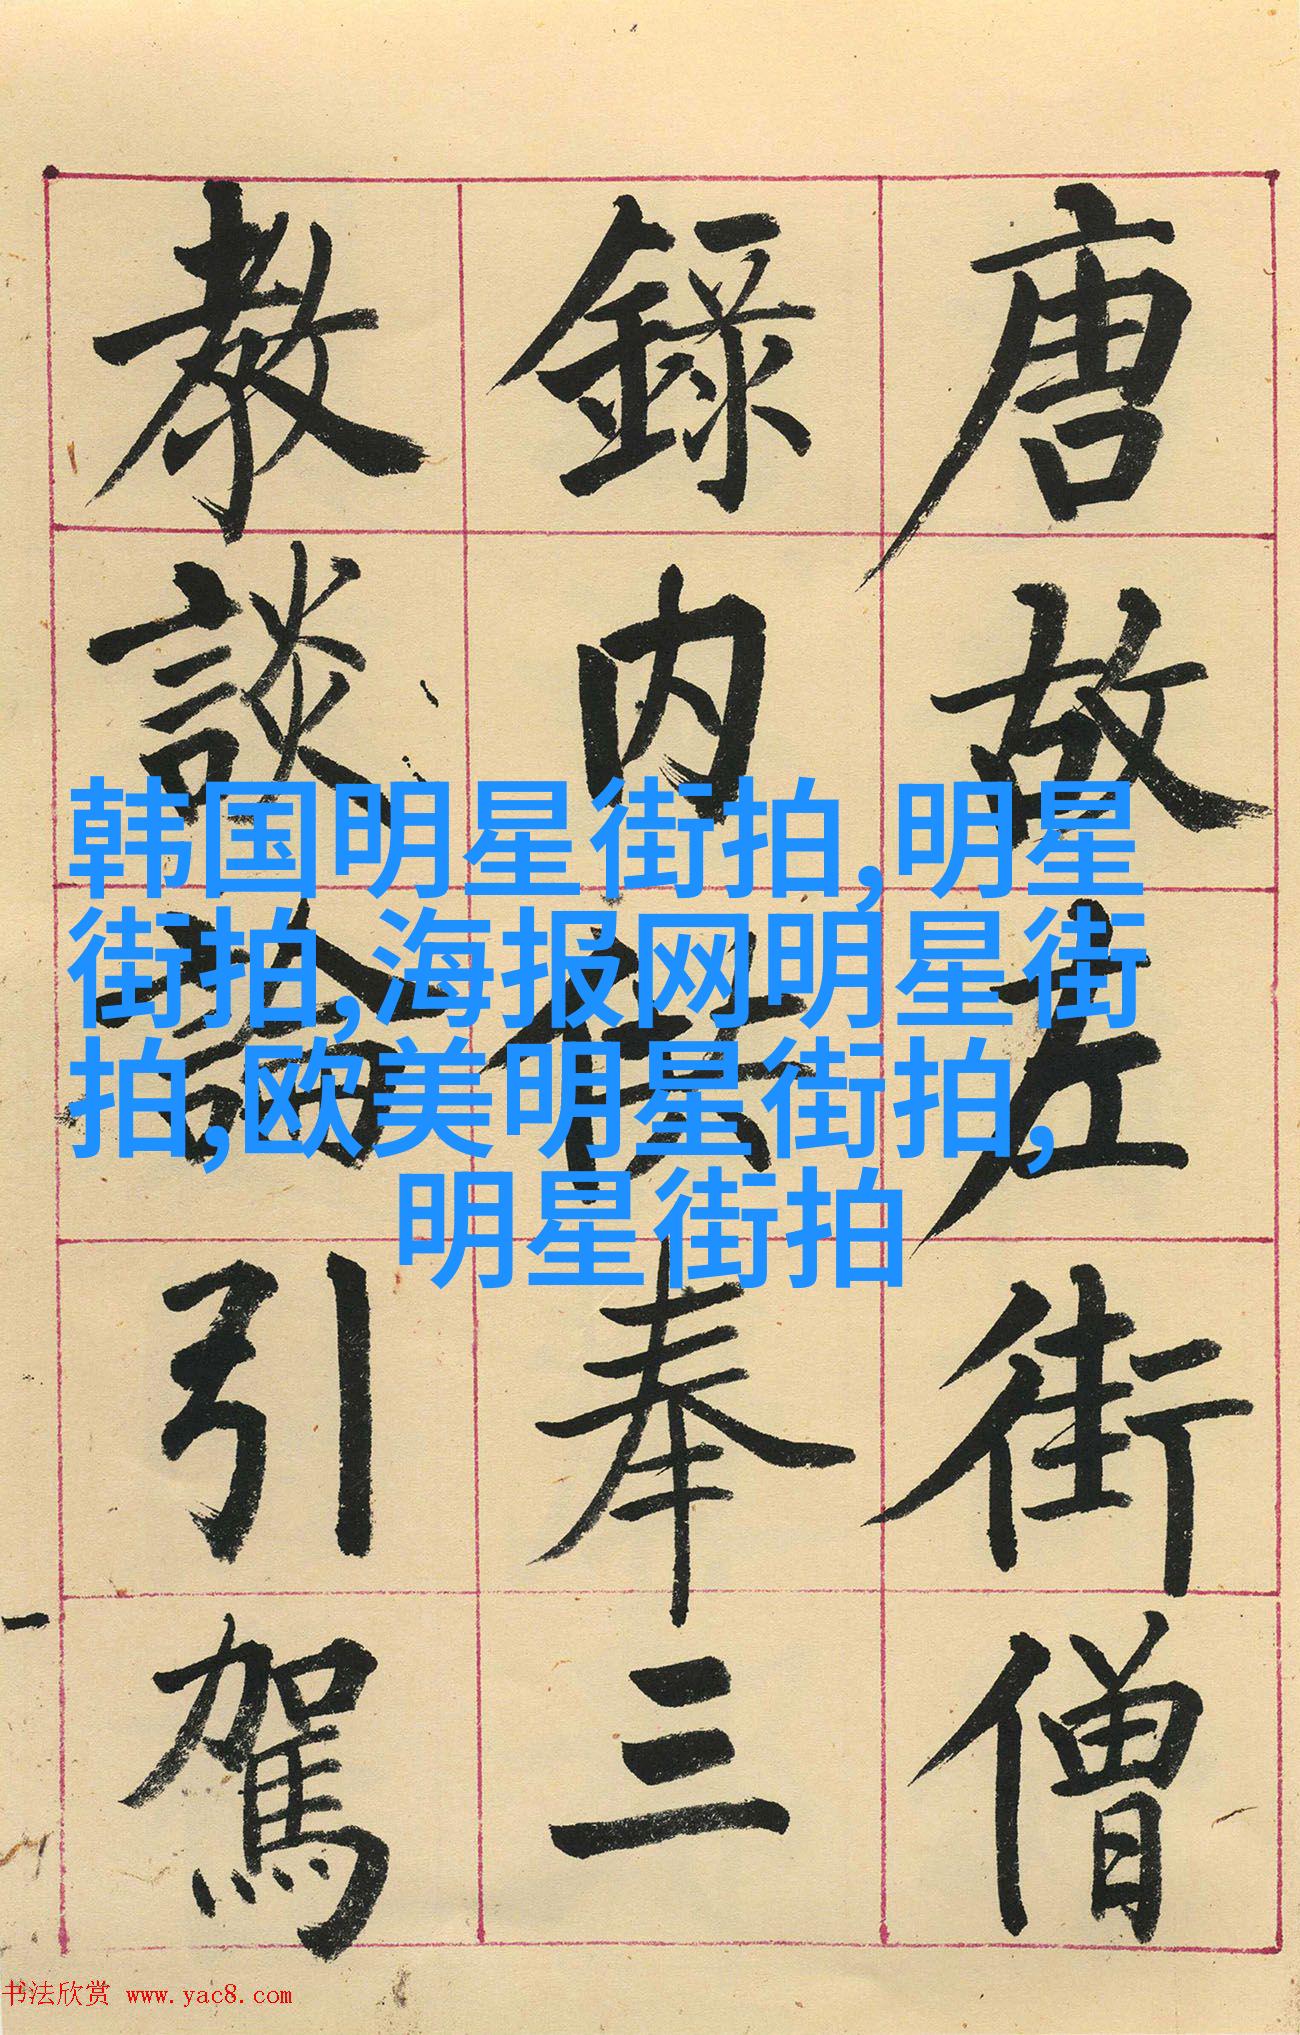 唐故左街僧
錄内供奉三
教談論引駕
韩国明星街拍,明星
街拍,海报网明星街
拍,欧美明星街拍,
明星街拍
书法欣赏 www.yac8.com